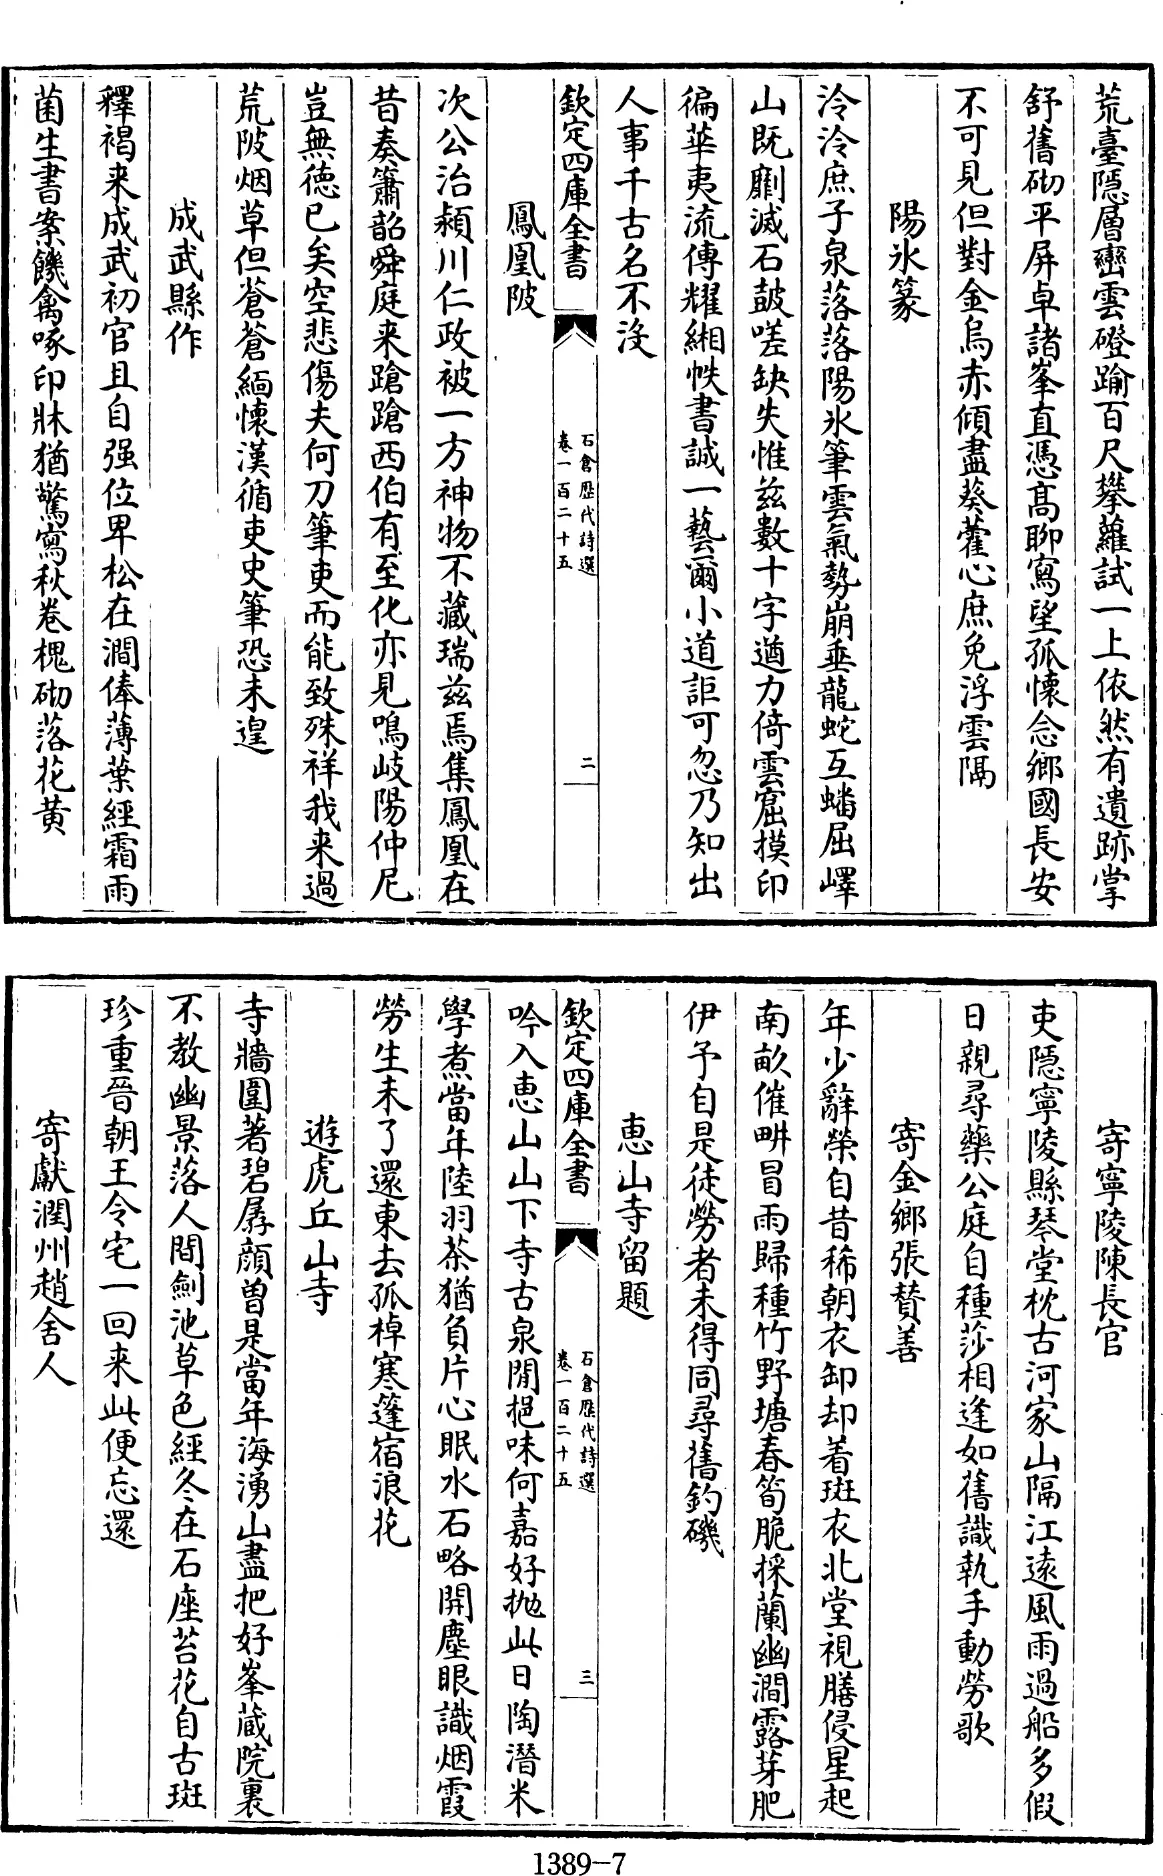 荒臺隱層巒雲磴踰百尺攀蘿試一上依然有遺跡掌
舒舊砌平屏卓諸峯直憑髙聊寫望孤懷念鄉國長安
不可見但對金烏赤傾盡葵藿心庶免浮雲隔
陽氷篆
泠泠庶子泉落落陽氷筆雲氣勢崩垂龍蛇互蟠屈嶧
山既劘滅石鼓嗟缺失惟兹數十字遒力倚雲窟摸印
徧華夷流傳耀緗帙書誠一藝爾小道詎可忽乃知出
人事千古名不沒
欽定四庫全書
石倉歴代詩選
卷一百二十五
二
鳳凰陂
次公治潁川仁政被一方神物不藏瑞兹焉集鳳凰在
昔奏簫韶舜庭来蹌蹌西伯有至化亦見鳴岐陽仲尼
豈無德已矣空悲傷夫何刀筆吏而能致殊祥我来過
荒陂烟草但蒼蒼緬懷漢循吏史筆恐未遑
成武縣作
釋褐来成武初官且自强位卑松在澗俸薄葉經霜雨
菌生書案饑禽啄印牀猶驚寫秋卷槐砌落花黄
寄寧陵陳長官
吏隱寧陵縣琴堂枕古河家山隔江逺風雨過船多假
日親尋藥公庭自種莎相逢如舊識執手動勞歌
寄金鄉張賛善
年少辭榮自昔稀朝衣卸却着斑衣北堂視膳侵星起
南畝催畊冒雨歸種竹野塘春筍脆採蘭幽澗露芽肥
伊予自是徒勞者未得同尋舊釣磯
惠山寺留題
欽定四庫全書
石倉歴代詩選
卷一百二十五
三
吟入惠山山下寺古泉閒挹味何嘉好抛此日陶潛米
學煮當年陸羽茶猶負片心眠水石略開塵眼識烟霞
勞生未了還東去孤棹寒篷宿浪花
遊虎丘山寺
寺牆圍著碧孱顔曽是當年海湧山盡把好峯藏院裏
不教幽景落人間劍池草色經冬在石座苔花自古斑
珍重晉朝王令宅一回来此便忘還
寄獻潤州趙舍人
1389-7